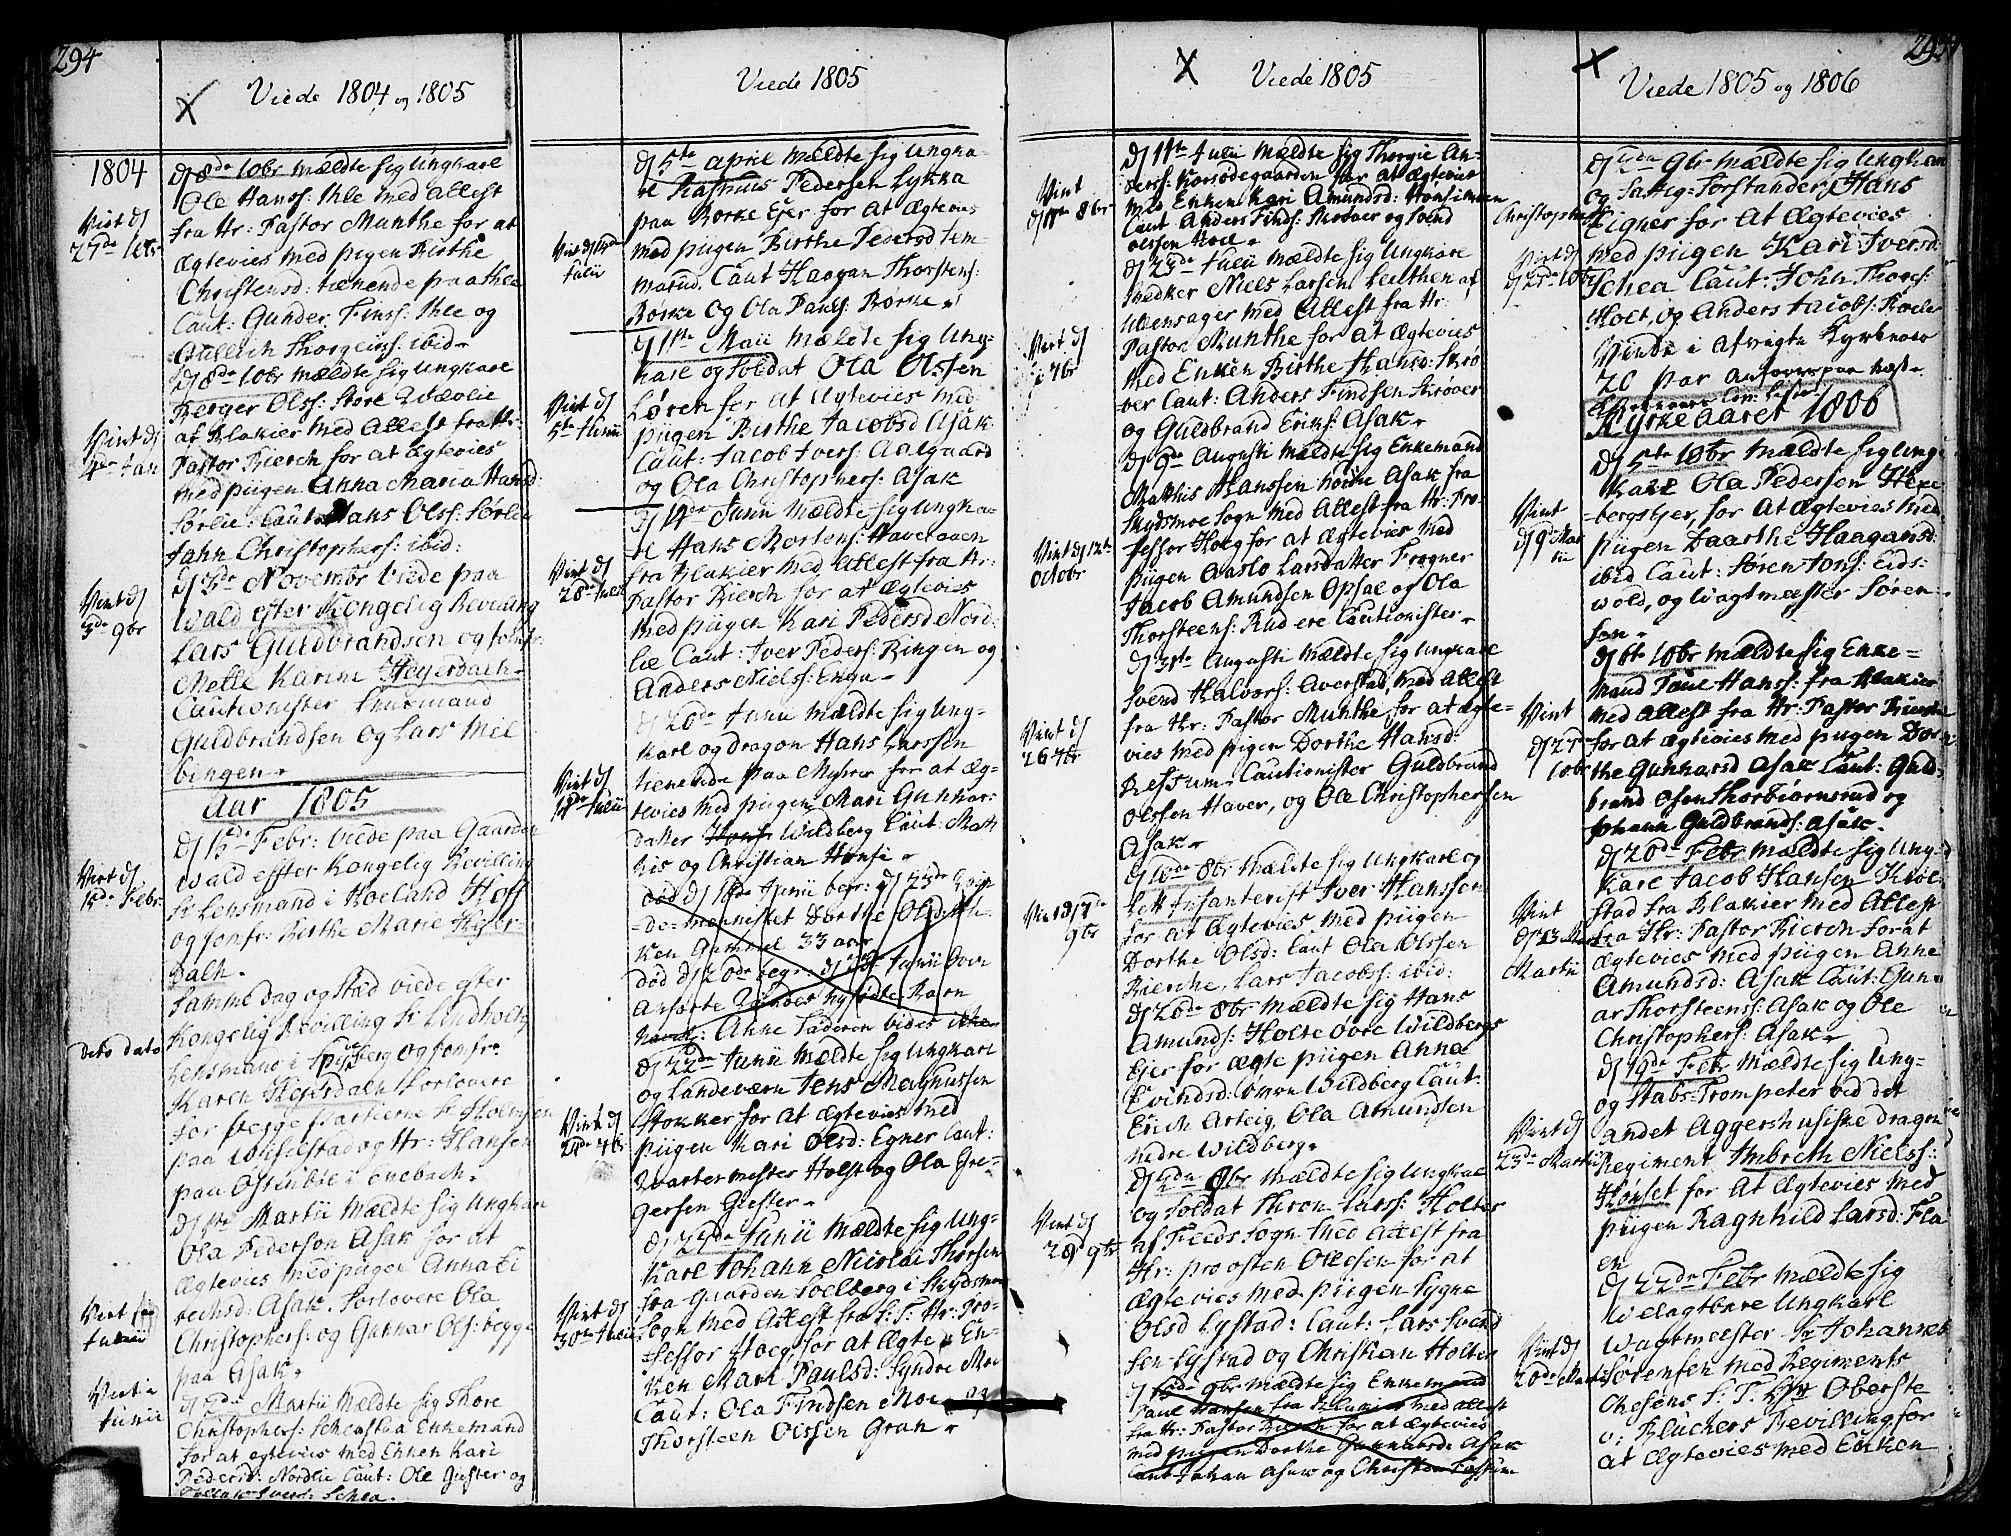 294
Viede 1804 og 1805
1804
Viet dj
27de 10br
dj 8de 10br mældte sig Ungkarl
Ole Hanss: Ihle med Attest
fra Hr: Pastor Munthe for at
Ægtevies med pigen Birthe
Christensd: tienende paa Ihle
Caut: Gunder Finss: Ihle og
Gullich Thorgerss: ibid
Viet dj
4de Jan
dj 8de 10br mældte sig Ungkarl
Berger Olss: Store
af Blakier med Attest fra Hr:
Pastor Bierch for at Ægtevies
med piigen Anna Maria Hansd:
Sørlie: Caut: Hans Olss: Sørlie
Jahn Christophers: ibid:
Viet dj
3de 9br
dj 3de Novembr Viede paa
Wald efter Kongelig Bevilling
Lars Guldbrandsen og Jomfr:
Mette Karine Heyerdach
Cautionister Lensmand
Guldbrandsen og Lars Mel
bingen
Aar 1805
Viet dj
15de Febr:
dj 15de Febr: viede paa Gaarden
Wald effter Kongelig Bevilling
Sr Lensmand i Høeland Hoff
og Jomfr: Birthe Marie Heyer-
dalh.
deto dato
Samme dag og Stæd viede efter
Kongelig Bevilling Sr Lindholt
Lensmand i Spydberg og Jomfr:
Karen Heyerdalh Forlovere
for begge partierne Sr Holmsen
paa og Hr: Hansen
paa Østenbie i Enebach
Viet
Junii
dj 1ste Martii Mældte sig Ungkarl
Ola Pederson Asak for at
Ægtevies med piigen Anna Di
derichsd: Asak. Forlovere Ola
Christophers: og Gunnar Ols: begge
paa Asak
Viet i
Junii
Martii Mældte sig Thore
Christophers: Enkemand
for at egtevies med Enken Kari
Pedersd: Nordlie Caut: Ole Giester og
Schea.
Viede 1805
Viet dj 14de
Julii
dj 5te april Mældte sig Ungka-
rl Rasmus Pedersen Lykka
paa Børke Ejer for at Ægtevies
med piigen Birthe Pedersd Sem-
marud. Caut Haagan Thorstens:
Børke og Ola Pauls: Børke
Viet dj
5te Junii
dj 11te Maii mældte sig Ung-
karl og Soldat Ola Olssen
Løren for at Ægtevies med
piigen Birthe Jacobsd Asak
Caut: Jacob Ivers: Aalgaard
og Ola Christophers: Asak
Viet dj
28de Julii
dj 14de Junii mældte sig Ungka-
rl Hans Mortens: Haveraaen
fra Blakier med Attest fra Hr:
Pastor Bierch for at Ægtevies
med piigen Kari Pedersd Nord
lie Caut: Iver Peders: Ringen og
Anders Niels: Enga
Viet dj
14de Julii
dj 20de Junii Mældte sig Ung-
karl og dragon Hans Larssen
tienende paa Myhrer for at Æg-
tevies med piigen Mari Gunnar:
datter Wildberg Caut: Mat
his og Christian Hønsi
død dj 18de Junii begr: dj 23de
de-mennisket Dorthe Olsd:
ken Gammel 33 aar
død dj 20de begr: dj Junii Oven
anførte Qvindes nyfødte Barn
Navl: Anne Faderen vides ikke
Viet dj
29de 7br
dj 22de Junii Mældte sig Ungkarl
og Landeværn Jens Magnussen
Stokker for at Ægtevies med
piigen Kari Olsd: Egner Caut:
Qvartermester Holst og Ola Gre-
gersen Giester
Viet dj
30de Julii
dj 29de Junii Mældte sig Ung-
karl Johann Nicolai Thorsen
fra Gaarden Soelberg i Skydsmoe
Sogn med Attest fra S: T: Hr: Pro-
fessor Hoeg for at Ægte En-
ken Mari Paulsd: Syndre Moe
Caut: Ola Findsen Moe og
Thorsteen Olssen Gran
Viede 1805
Viet
8br
dj 11te Julii Mældte sig Thorgie An-
derss: Korsødegaarden for at Ægtevies
med Enken Kari Amundsd: Hønsimoen
Caut Anders Finds: Skrøver og Svend
olssen
Viet dj
7br
dj 23de Julii Mældte sig Ungkarl
Snedker Niels Larsen Leuthen af
Ullensager med Attest fra Hr:
Pastor Munthe for at Ægtevies
med Enken Birthe Hansd: Skrø
ver Caut: Anders Findsen Skrøver
og Guldbrand Eriks: Asak
Viet dj 12te
Octobr
dj 9de Augusti Mældte sig Enkemand
Mathis Hanssen Asak fra
Skydsmoe Sogn med Attest fra Hr: Pro-
fessor Hoeg for at Ægtevies med
piigen Aaslo Larsdatter Frogner
Jacob Amundsen Opsal og Ola
Thorsteens: Rud ere Cautionister
Viet dj
26 7br
dj 31te Augusti Mældte sig Ungkarl
Svend Halvors: Averstad, med Attest
fra Hr: Pastor Munthe for at Ægte-
vies med piigen Dorthe Hansd:
Refsum Cautionister Guldbrand
Olssen Haver, og Ole Christophersen
Asak
Viet dj 7de
9br
dj 10de 8br Mældte sig Ungkarl og
Lett Infanterist Iver Hanssen
for at Ægtevies med piigen
Dorthe Olsd: Caut Ola Olssen
Bierche, Lars Jacobss: ibid:
dj 26de 8br Mældte sig Hans
Amunds: Holte øvre Wildbergs
Ejer for ægte piigen Anne
Evindsd: øvre Wildberg Caut:
Erich Arteig, Ola Amundssen
nedre Wildberg
Viet dj
28de 9br
dj 2de 9br Mældte sig Ungkarl
og Soldat Thron Larss: Holter
af Feeds Sogn med Attest fra
Hr: provsten Ottesen for at
Ægtevies med piigen Sygne
Olsd Lystad: Caut: Lars Svend
sen Lystad og Christian Holter
dj 9br Mældte sig Enkemand
Paul Hansen fra Blakier med Attest
fra Hr: Pastor Bierch for at ægtevies
med piigen Dorthe Gunnarsd: Asak
Caut Johan Asak og Christen Fossum
Viede 1805 og 1806
Viet dj
10br
dj 9br Mældte sig Ungkarl
og Fattig-Forstander Hans
Christophers: Eigner for at Ægtevies
med piigen Kari Iversd:
Schea Caut: John Thores:
Holt, og Anders Jacobs:
Viede i afvigte Kyrkeaar
20 Par
Kyrke aaret 1806
Viet
dj 9de Mar
tii
dj 5te 10br Mældte sig Ung
karl Ola Pedersen
bergs ejer, for at Ægtevies med
piigen Daarthe Haagansd:
ibid Caut: Søren Jons: Eids-
wold, og Wagtmester Søren-
sen
Viet
dj 27de
10br
dj 6te 10br mældte sig Enke-
mand Paul Hanss: fra Blakier
med Attest fra Hr: Pastor Bierch
for at ægtevies med piigen Dor
the Gunnarsd Asak Caut: Guld-
brand Olsen Thorbiørnsrud og
Johann Guldbrands: Asak
Viet
dj 23
Martii
dj 20de Febr Mældte sig Ung
karl Jacob Hansen Kiøl
stad fra Blakier med Attest
fra Hr: Pastor Bierch for at
Ægtevies med piigen Anne
Amundsd: Asak Caut: Gun-
ar Thorsteenss: Asak og Ole
Christophers: Asak
Viet dj
23de Martii
dj 19de Febr Mældte sig Ung-
og Stabs-Trompeter ved det
andet Aggershusiske dragon
Regiment Ambroth Nielss:
Hønset for at Ægtevies med
piigen Ragnhild Larsd: Fla
en
Viet dj
20de Martii
dj 22de Febr Mældte sig
Welagtbare Ungkarl
Wagtmeester Sr Johannes
Sørensen med Regiments
Chefens S. T. Hr Oberste
v: Blüchers Bevilling for
at Ægtevies med Enken